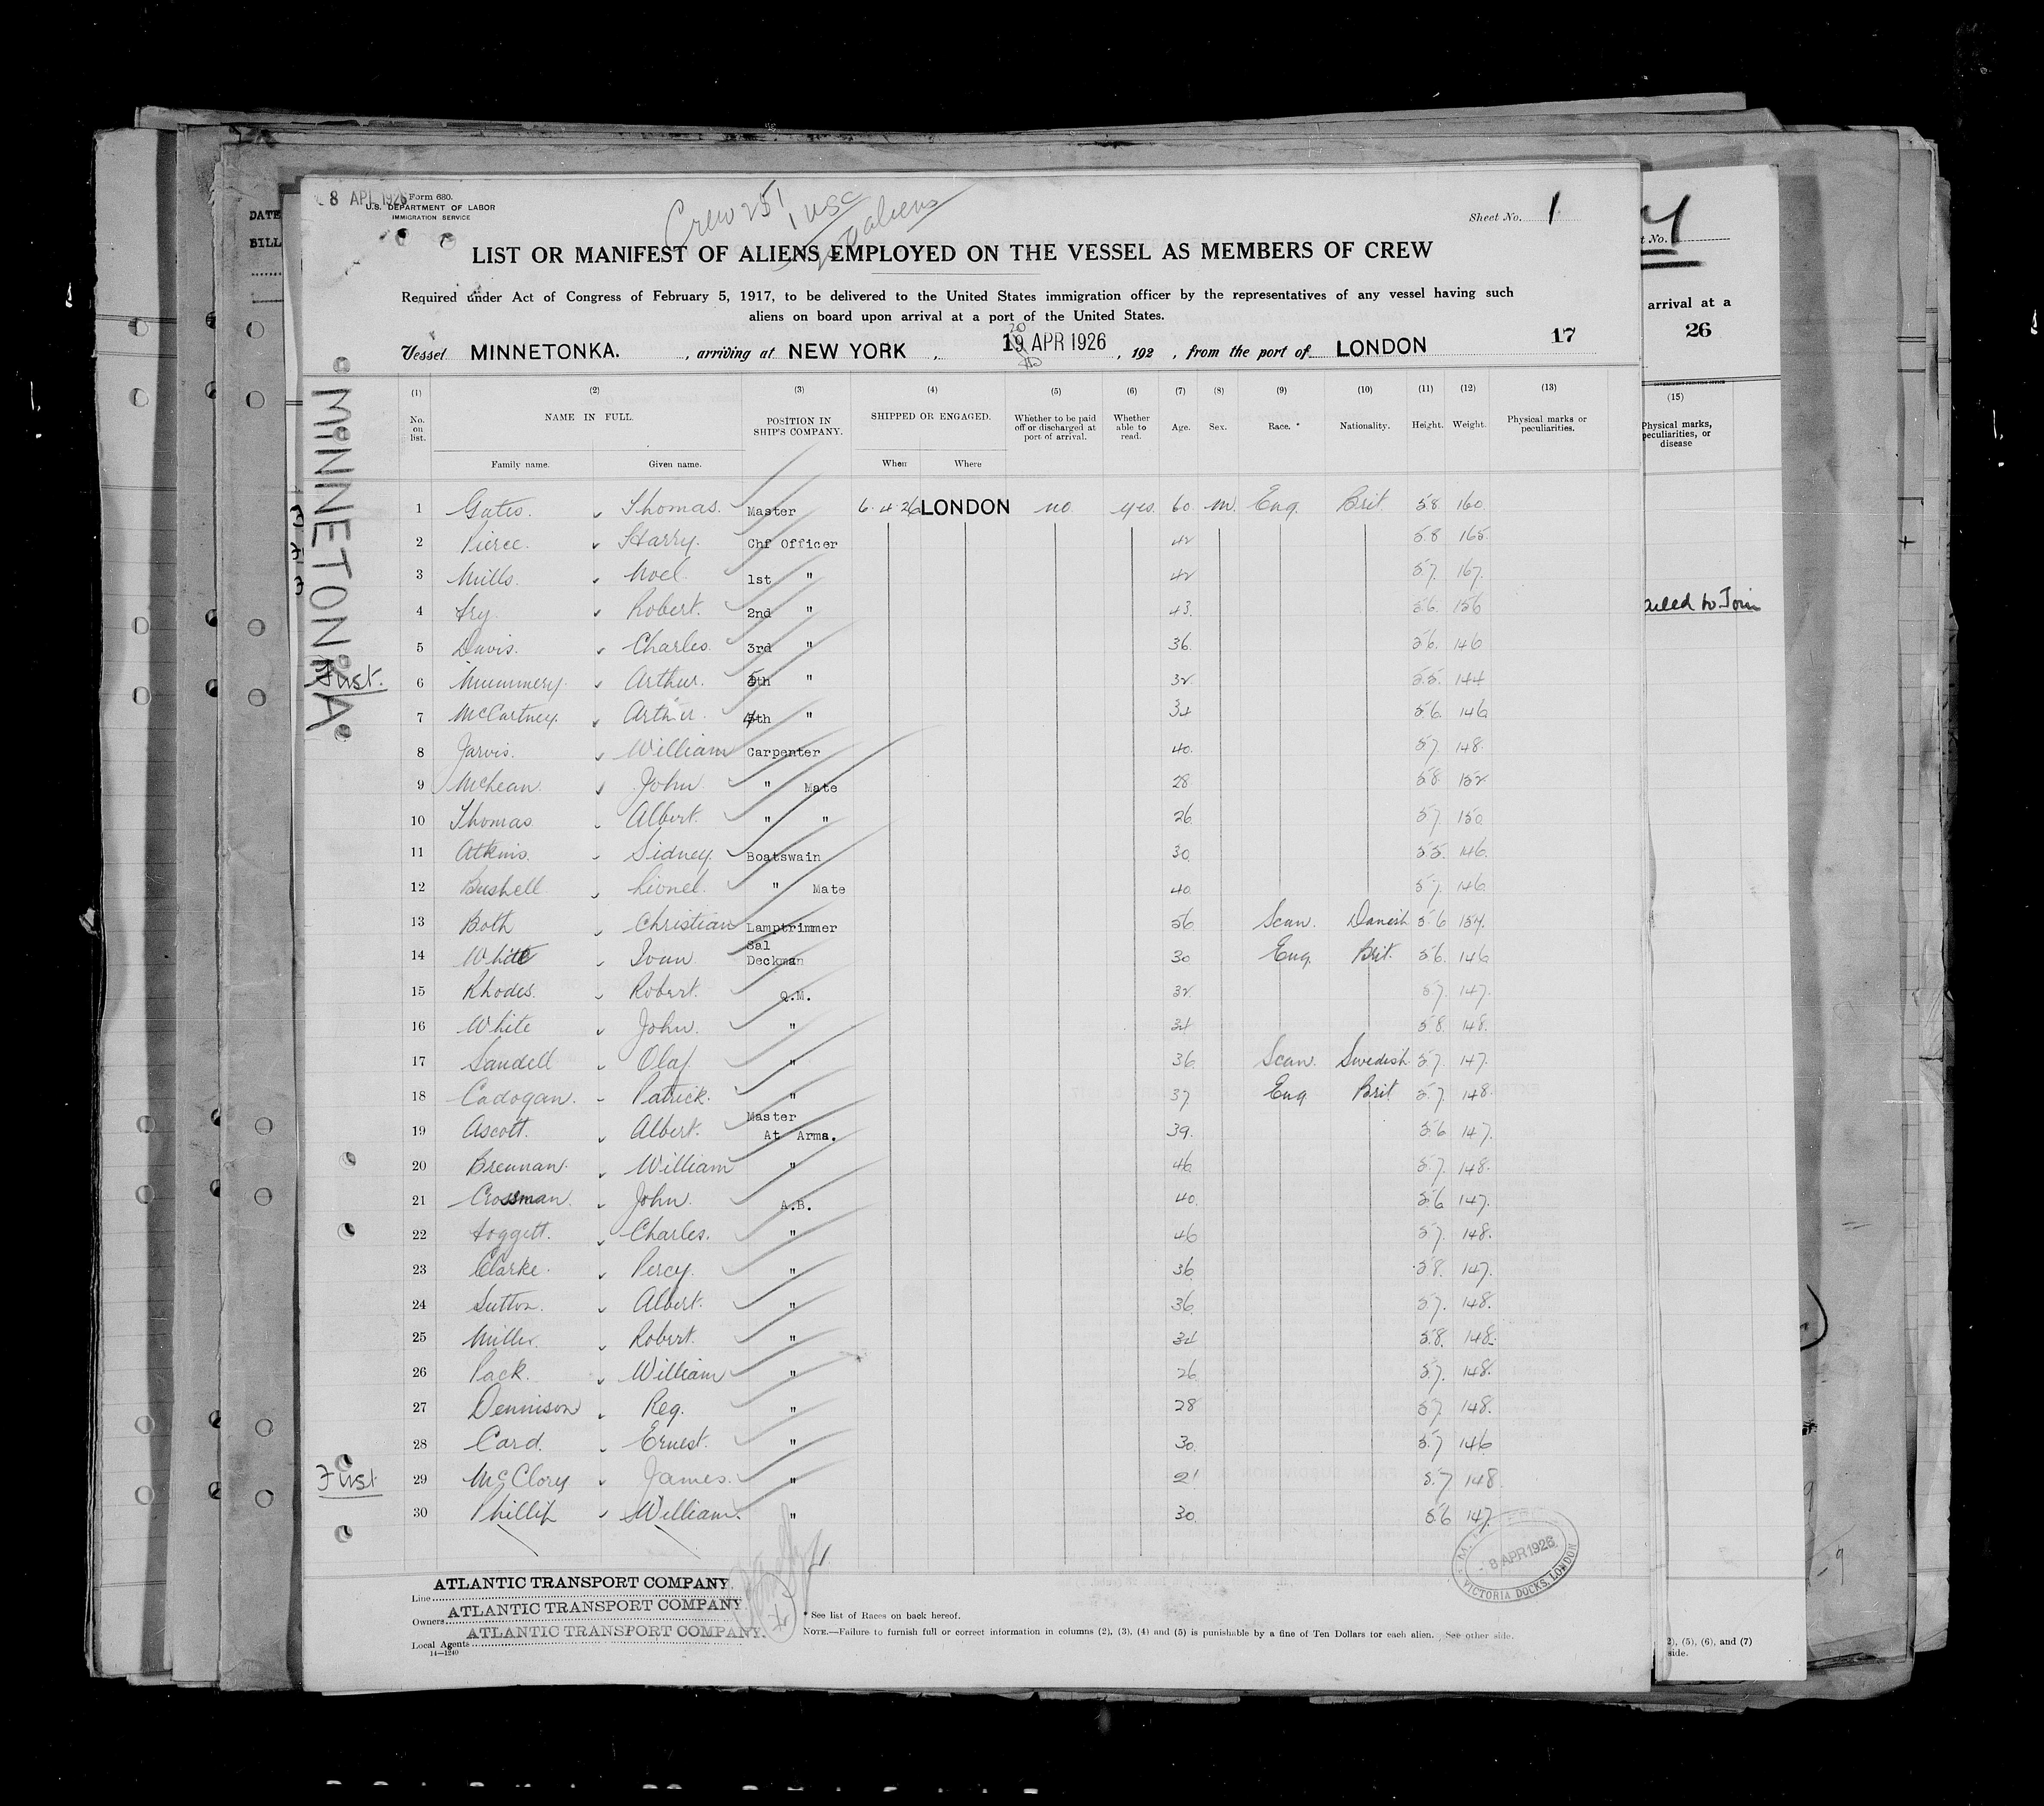 8 APL 1926
Form 680.
U.S. DEPARTMENT OF LABOR
IMMIGRATION SERVICE
Crew 251
1 USC
aliens
Sheet No. 1
LIST OR MANIFEST OF ALIENS EMPLOYED ON THE VESSEL AS MEMBERS OF CREW
Required under Act of Congress of February 5, 1917, to be delivered to the United States immigration officer by the representatives of any vessel having such
aliens on board upon arrival at a port of the United States.
20
Vessel MINNETONKA. , arriving at NEW YORK , 19 APR 1926 , 192 , from the port of LONDON 17
MINNETONKA
(1) (2) (3) (4) (5) (6) (7) (8) (9) (10) (11) (12) (13)
No. on list. NAME IN FULL. POSITION IN SHIP'S COMPANY. SHIPPED OR ENGAGED. Whether to be paid off or discharged at port of arrival. Whether able to read. Age. Sex. Race. * Nationality. Height. Weight. Physical marks or peculiarities.
Family name. Given name. When Where
1 Gates. Thomas. Master 6.4.26 LONDON no yes 60 m. Eng. Brit. 5.8 160
2 Pierce. Harry. Chf Officer 42 5.8 165
3 Mills. Noel. 1st " 42 5.7. 167.
4 Fry. Robert. 2nd " 43. 5.6. 156
5 Davis. Charles. 3rd " 36. 5.6. 146
First.
6 Mummery. Arthur. " 32. 5.5. 144
7 McCartney. Arthur. " 34 5.6. 146
8 Jarvis. William Carpenter 40. 5.7. 148.
9 McLean. John. " Mate 28. 5.8. 152
10 Thomas Albert. " " 26. 5.7 150
11 Atkins. Sidney. Boatswain 30. 5.5. 146.
12 Bushell Lionel. " Mate 40 5.7. 146
13 Both Christian Lamptrimmer 56 Scan. Danish 5.6 154.
14 White Ivan Sal Deckman 30 Eng. Brit. 5.6. 146
15 Rhodes. Robert. Q.M. 32. 5.7. 147.
16 White John. " 34 5.8. 148.
17 Sandell Olaf. " 36 Scan. Swedish 5.7. 147.
18 Cadogan. Patrick. " 37 Eng Brit 5.7. 148.
19 Ascott. Albert. Master At Arms. 39. 5.6 147.
20 Brennan. William " 46 5.7. 148.
21 Crossman. John. A.B. 40. 5.6 147.
22 Foggett. Charles. " 46 5.7. 148.
23 Clarke. Percy. " 36 5.8. 147.
24 Sutton. Albert. " 36. 5.7. 148.
25 Miller. Robert. " 34 5.8. 148.
26 Pack. William " 26 5.7. 148.
27 Dennison Reg. " 28 5.7. 148.
28 Card. Ernest. " 30. 5.7 146
First
29 McClory James. " 21 5.7 148
30 Phillip William. " 30. 5.6 147.
8 APR 1926
VICTORIA DOCKS, LONDON
Line ATLANTIC TRANSPORT COMPANY.
Owners ATLANTIC TRANSPORT COMPANY
Local Agents ATLANTIC TRANSPORT COMPANY.
14—1240
* See list of Races on back hereof.
NOTE.—Failure to furnish full or correct information in columns (2), (3), (4) and (5) is punishable by a fine of Ten Dollars for each alien. See other side.
DATE
BILL
t No.
arrival at a
26
(15)
Physical marks, peculiarities, or disease
ailed to Join
2), (5), (6), and (7)
side.